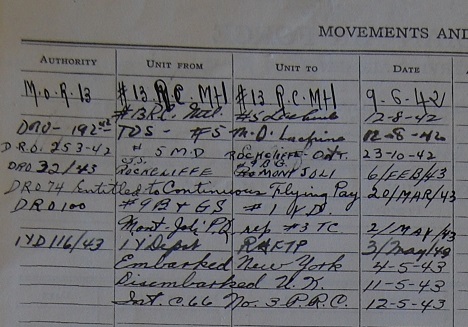 MOVEMENTS AND
AUTHORITY UNIT FROM UNIT TO DATE
M.O.R. 13 #13 R.C. MH #13 R.C. MH 9-6-42
#13 R.C. Mtl. #5 Lachine 12-8-42
DRO-192 TOS - #5 M.D. Lachine 12-8-42
D.R.O. 253-42 #5 M.D ROCKCLIFFE-Ont. 23-10-42
DRO 32/43 ROCKCLIFFE MONT JOLI 6/FEB/43
DRO 74 Entitled to Continuous Flying Pay 20/MAR/43
DRO 100 #9 B & GS #1 Y.D.
Mont-Joli P.Q. rep #3 TC 2/MAY/43
1YD 116/43 1Y Depot RAFTP 3/May/43
Embarked New York 4-5-43
Disembarked U.K. 11-5-43
Int. C.66 No. 3 P.R.C. 12-5-43